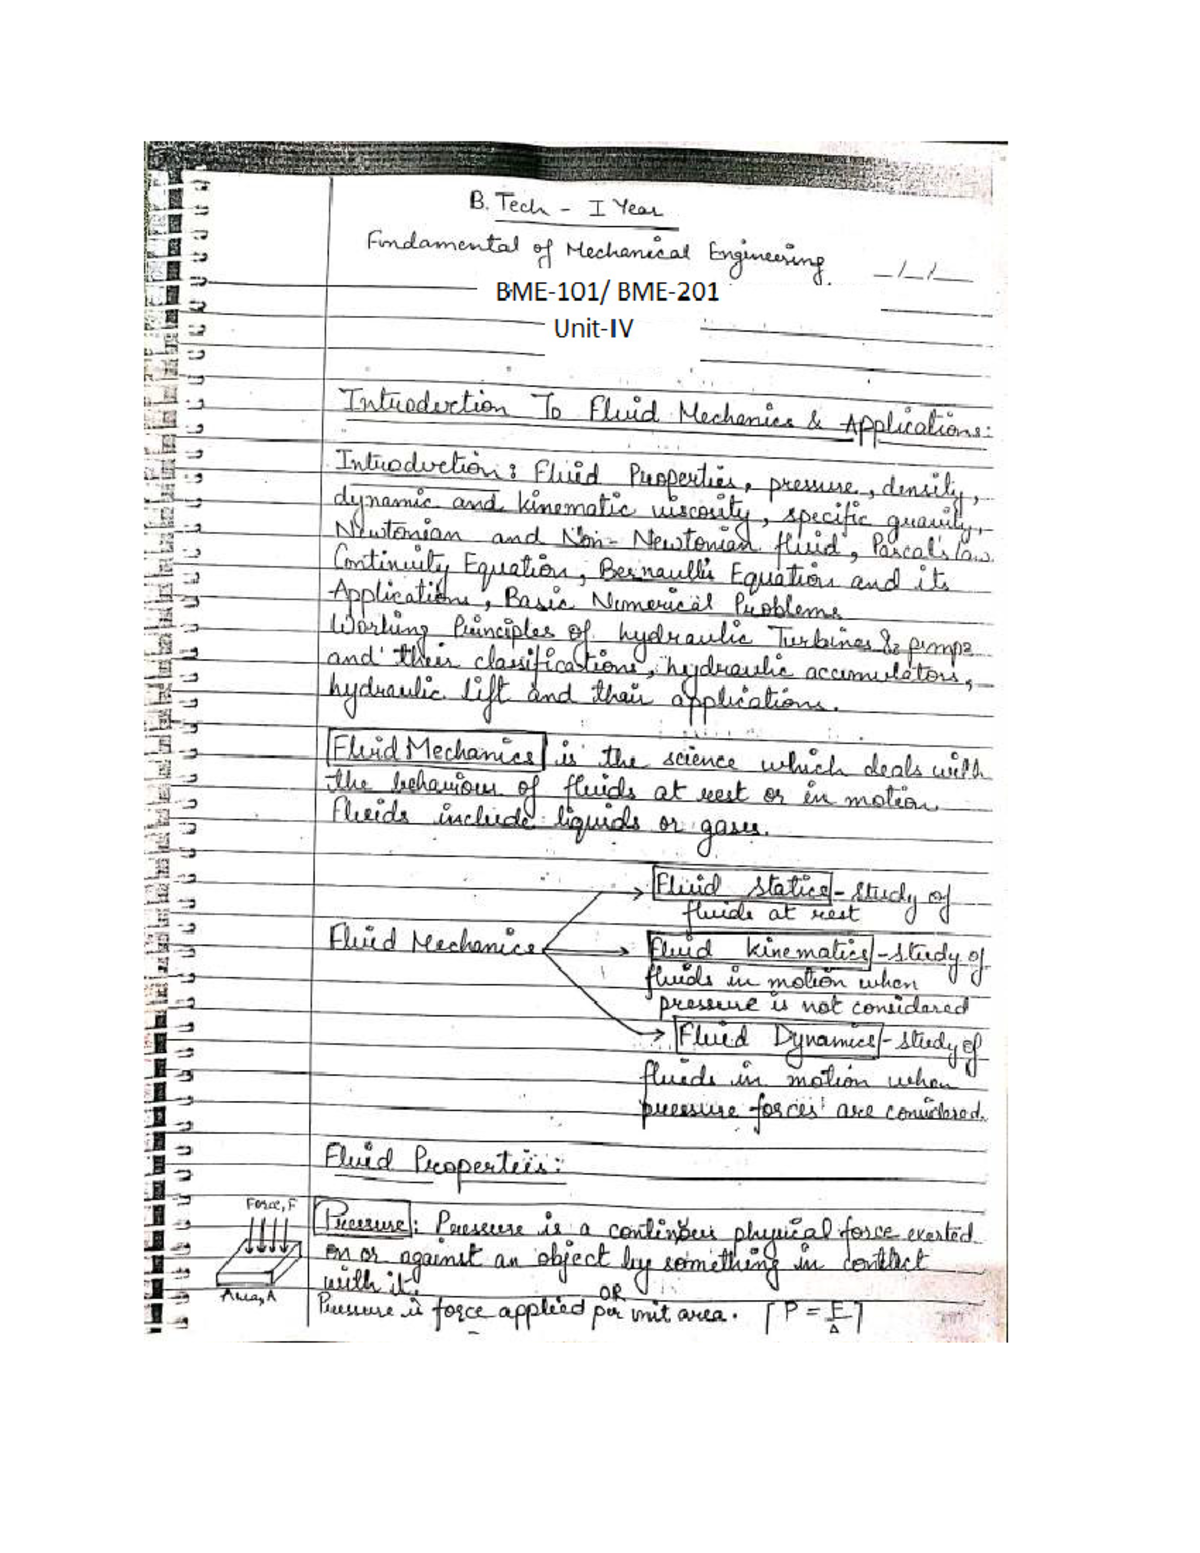 B. Tech - I Year
Fundamental of Mechanical Engineering.
BME-101/ BME-201
Unit-IV
Introduction To Fluid Mechanics & Applications:
Introduction: Fluid Properties, pressure, density,
dynamic and kinematic viscosity, specific gravity,
Newtonian and Non-Newtonian fluid, Pascal's law
Continuity Equation, Bernaulli's Equation and its
Applications, Basic Numerical Problems
Working Principles of hydraulic Turbines & pumps
and their classifications, hydraulic accumulators,
hydraulic lift and their applications.
Fluid Mechanics is the science which deals with
the behaviour of fluids at rest or in motion.
Fluids include liquids or gases.
Fluid Statics - Study of
fluids at rest
Fluid Mechanics
Fluid Kinematics - Study of
fluids in motion when
pressure is not considered
Fluid Dynamics - Study of
fluids in motion when
pressure forces are considered.
Fluid Properties:
Force, F
Area, A
Pressure: Pressure is a continous physical force exerted
on or against an object by something in contact
with it.
OR
Pressure is force applied per unit area. P = F/A